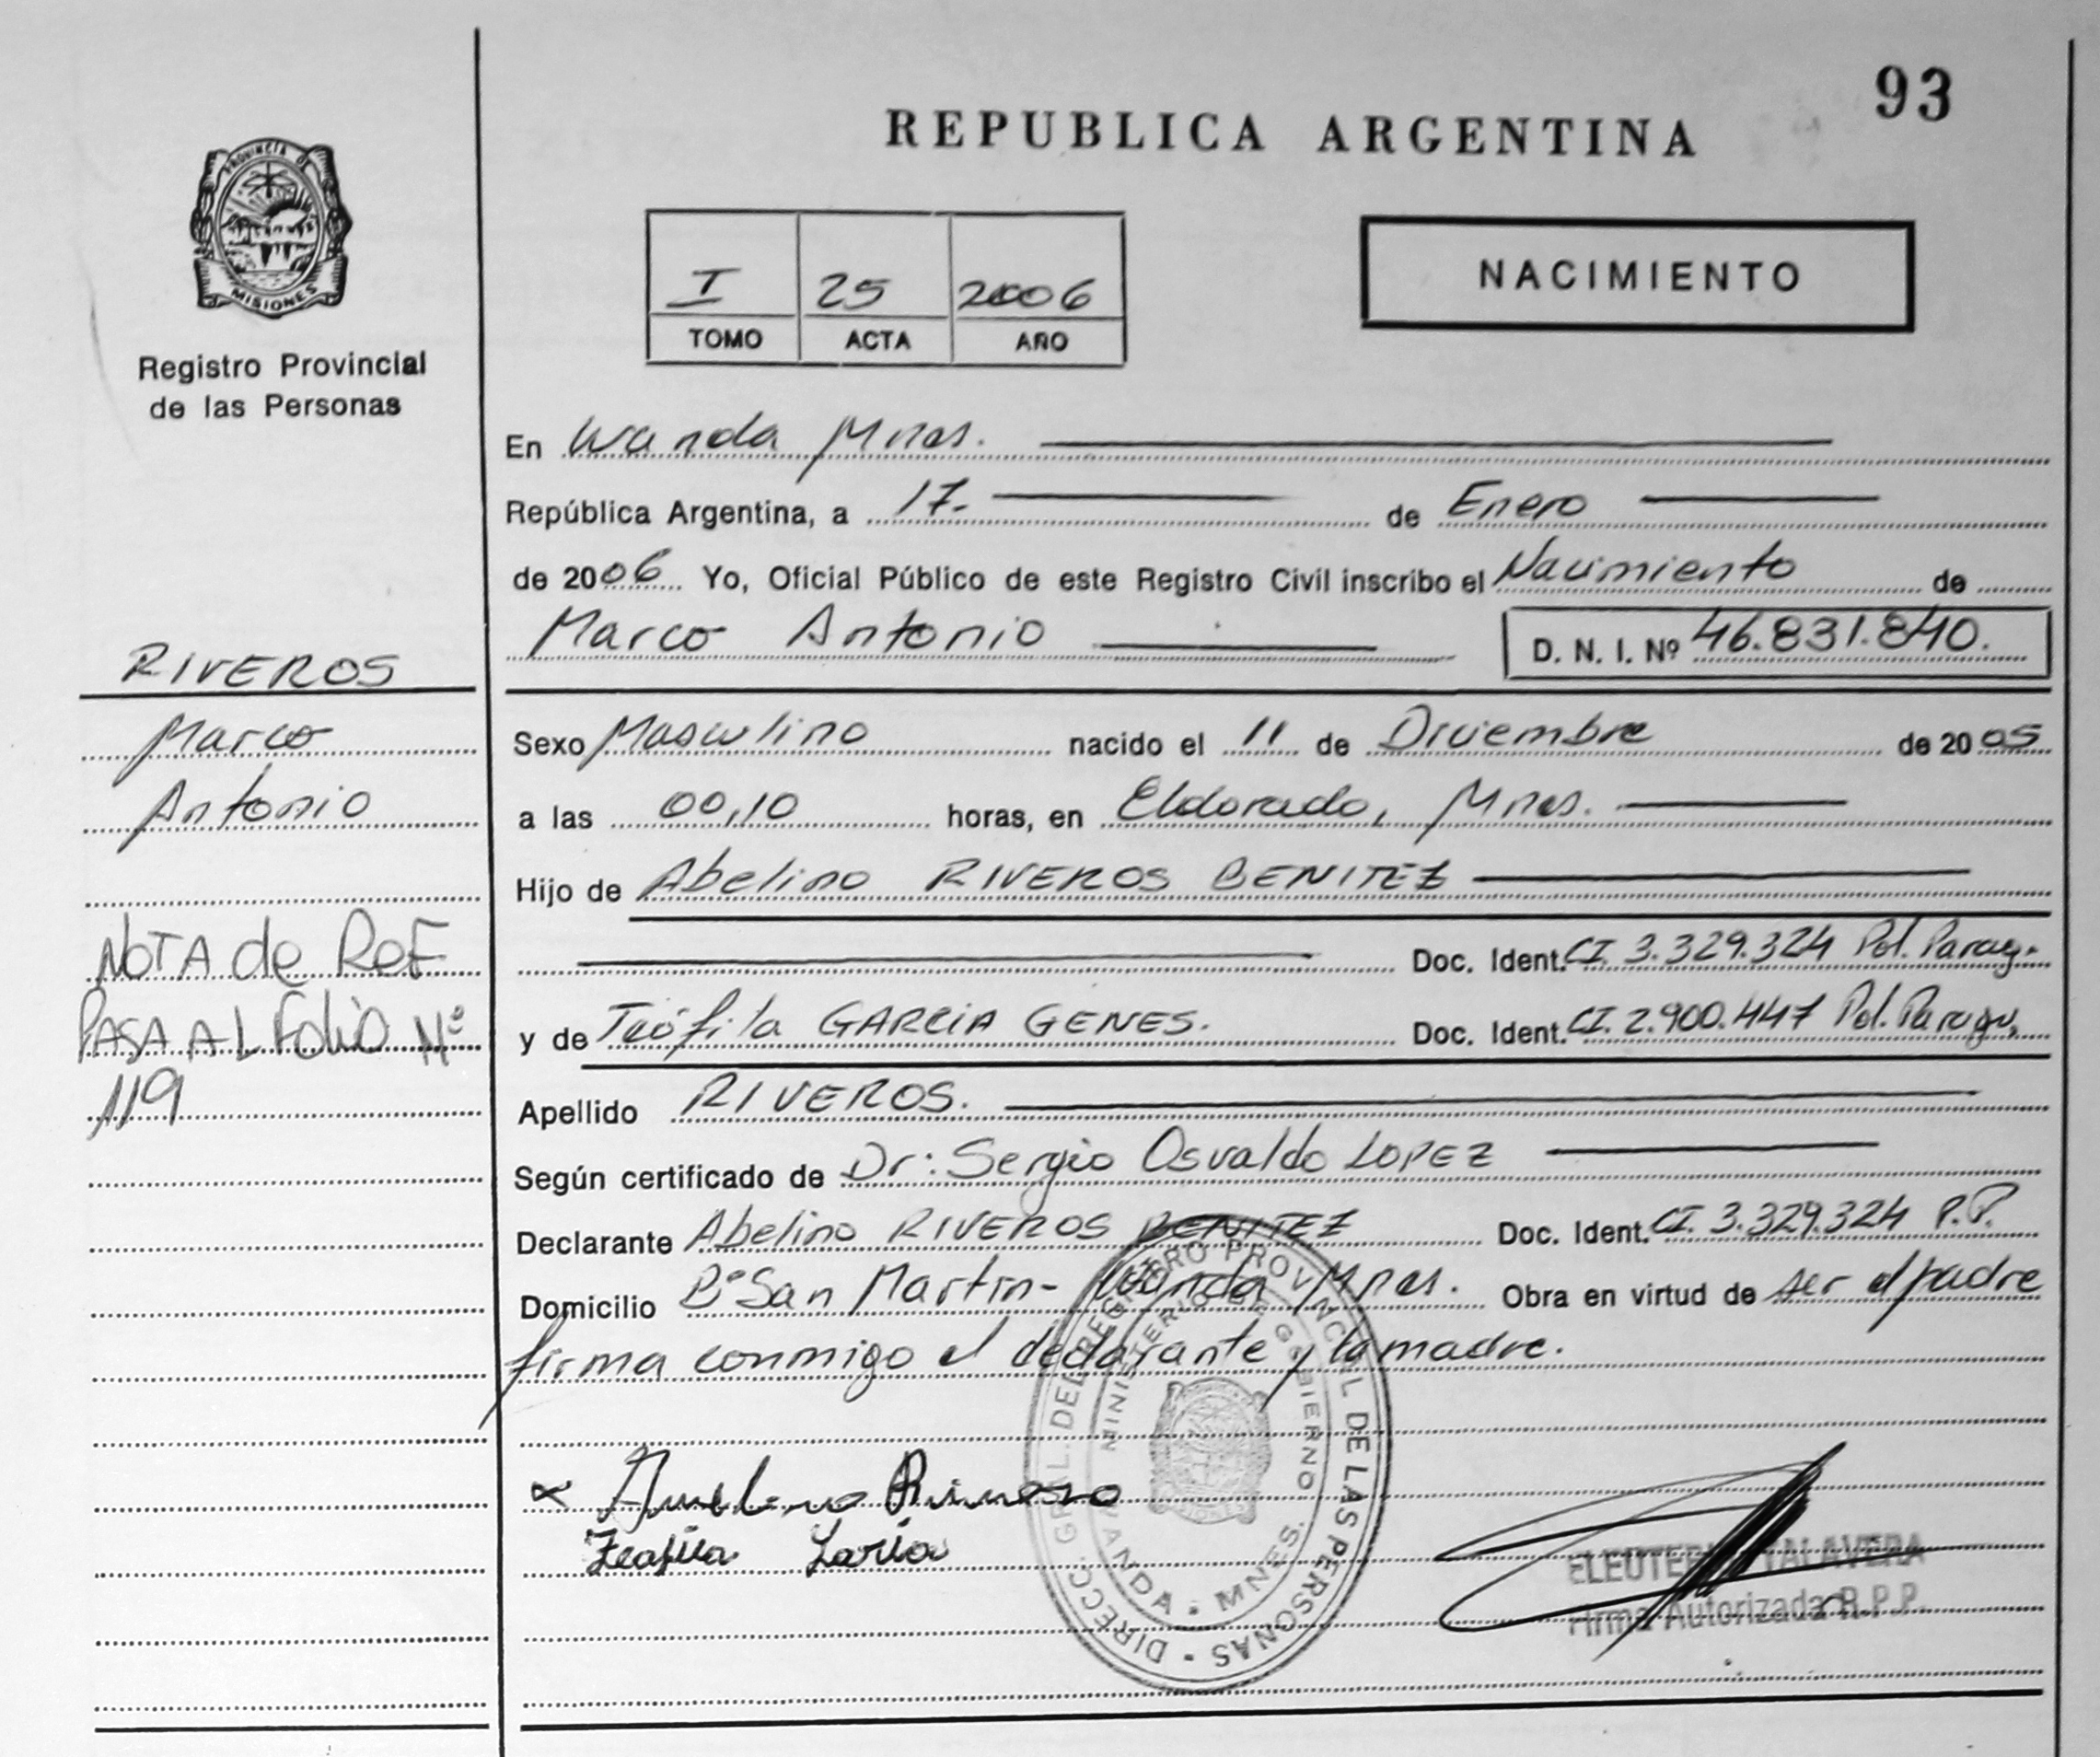 93
REPUBLICA ARGENTINA
PROVINCIA DE
MISIONES
Registro Provincial
de las Personas
I 25 2006
TOMO ACTA AÑO
NACIMIENTO
En Wanda Mnes.
República Argentina, a 17.- de Enero
de 2006 Yo, Oficial Público de este Registro Civil inscribo el Nacimiento de
Marco Antonio D. N. I. Nº 46.831.840.
RIVEROS
Marco
Antonio
NOTA de REF
PASA AL FOLIO Nº
119
Sexo Masculino nacido el 11 de Diciembre de 2005
a las 00,10 horas, en Eldorado, Mnes.
Hijo de Abelino RIVEROS BENITEZ
Doc. Ident. CI. 3.329.324 Pol. Parag.
y de Teófila GARCIA GENES. Doc. Ident. CI. 2.900.447 Pol. Parag.
Apellido RIVEROS.
Según certificado de Dr: Sergio Osvaldo LOPEZ
Declarante Abelino RIVEROS BENITEZ Doc. Ident. CI. 3.329.324 P.P.
Domicilio Bº San Martin- Wanda Mnes. Obra en virtud de ser el padre
firma conmigo el declarante y la madre.
DIRECC. GRAL. DEL REGISTRO PROVINCIAL DE LAS PERSONAS
MINISTERIO DE GOBIERNO
WANDA - MNES.
ELEUTERIO TALAVERA
Firma Autorizada R.P.P.